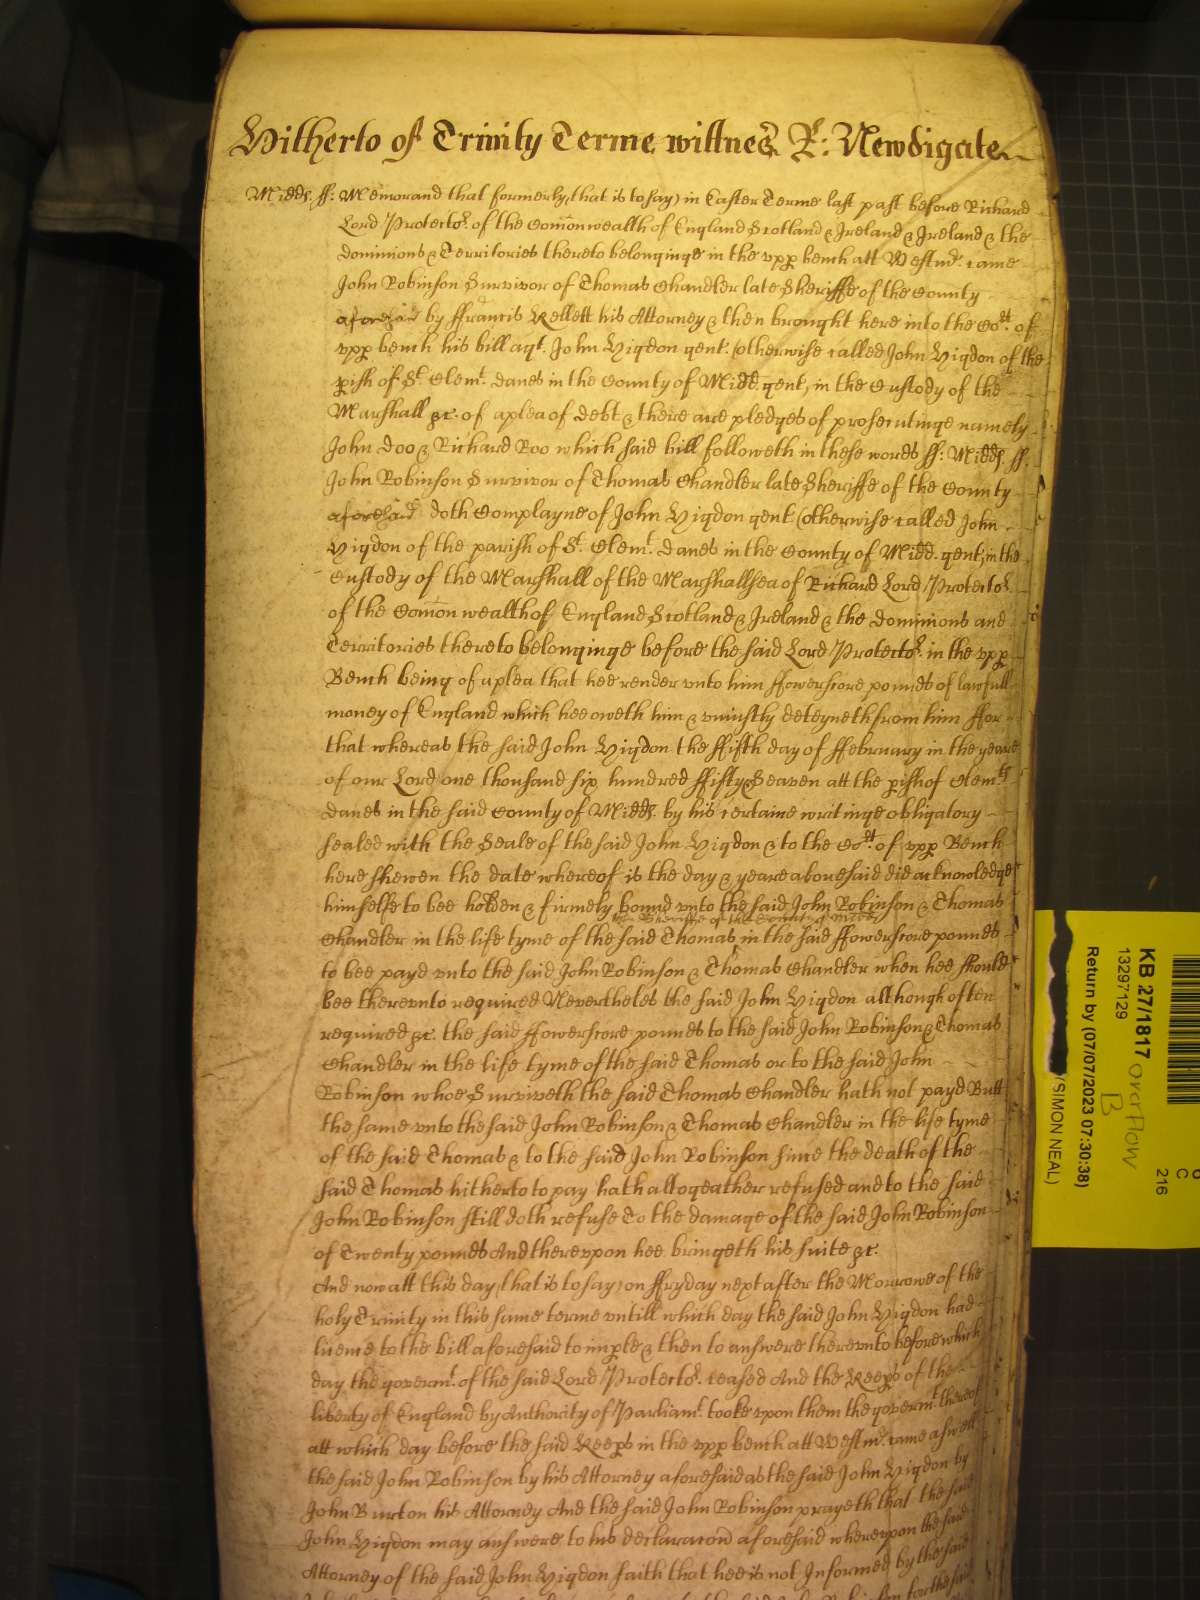 Hitherto of Trinity Terme wittnes R: Newdigate
Midds. ff: Memorand that formerly (that is to say) in Easter Terme last past before Richard
Lord Protector. of the Comonwealth of England Scotland & Ireland & Ireland & the
dominions & Territories thereto belonginge in the upp bench att Westmr. came
John Robinson Survivor of Thomas Chandler late Sheriffe of the County
aforesaid by ffrancis Kellett his Attorney & then brought here into the Cort. of
upp bench his bill agt. John Higdon gent: (otherwise called John Higdon of the
pish of St. Clemt. danes in the County of Midd. gent, in the Custody of the
Marshall &c. of a plea of debt & there are pledges of prosecutinge namely
John Doo & Richard Roo which said bill followeth in these words ff: Midds. ff.
John Robinson Survivor of Thomas Chandler late Sheriffe of the County
aforesaid doth Complayne of John Higdon gent (otherwise called John
Higdon of the parish of St. Clemt. danes in the County of Midd. gent, in the
Custody of the Marshall of the Marshallsea of Richard Lord Protector.
of the Comon wealth of England Scotland & Ireland & the dominions and
Territories thereto belonginge before the said Lord Protector. in the upp
Bench being of a plea that hee render unto him ffowerscore pounds of lawfull
money of England which hee oweth him & uniustly deteyneth from him ffor
that whereas the said John Higdon the ffifth day of ffebruary in the yeare
of our Lord one thousand six hundred ffifty & Seaven att the pish of Clemts
danes in the said County of Midds. by his certaine writinge obligatory
sealed with the Seale of the said John Higdon & to the Cort. of upp Bench
here shewen the date whereof is the day & yeare abovesaid did acknowledge
himselfe to bee holden & firmely bound unto the said John Robinson & Thomas
Sheriffe of the County of Midds
Chandler in the life tyme of the said Thomas in the said ffowerscore pounds
to bee payd unto the said John Robinson & Thomas Chandler when hee should
bee thereunto required Nevertheles the said John Higdon although often
required &c. the said ffowerscore pounds to the said John Robinson & Thomas
Chandler in the life tyme of the said Thomas or to the said John
Robinson whoe Surviveth the said Thomas Chandler hath not payd Butt
the same unto the said John Robinson & Thomas Chandler in the life tyme
of the said Thomas & to the said John Robinson since the death of the
said Thomas hitherto to pay hath altogeather refused and to the said
John Robinson still doth refuse To the damage of the said John Robinson
of Twenty pounds And thereupon hee bringeth his suite &c.
And now att this day (that is to say) on ffryday next after the Morrowe of the
holy Trinity in this same terme untill which day the said John Higdon had
licence to the bill aforesaid to imple & then to answere thereunto before which
day the governt. of the said Lord Protector. ceased And the Keeps of the
liberty of England by Authority of Parliamt. tooke upon them the governt. thereof
att which day before the said Keeps in the upp bench att Westmr. came aswell
the said John Robinson by his Attorney aforesaid as the said John Higdon by
John Burton his Attorney And the said John Robinson prayeth that the said
John Higdon may answere to his declaracon aforesaid whereupon the said
Attorney of the said John Higdon saith that hee is not Informed by the said
KB 27/1817 overflow
B
13297129
Return by (07/07/2023 07:30:38)
(SIMON NEAL)
C
216